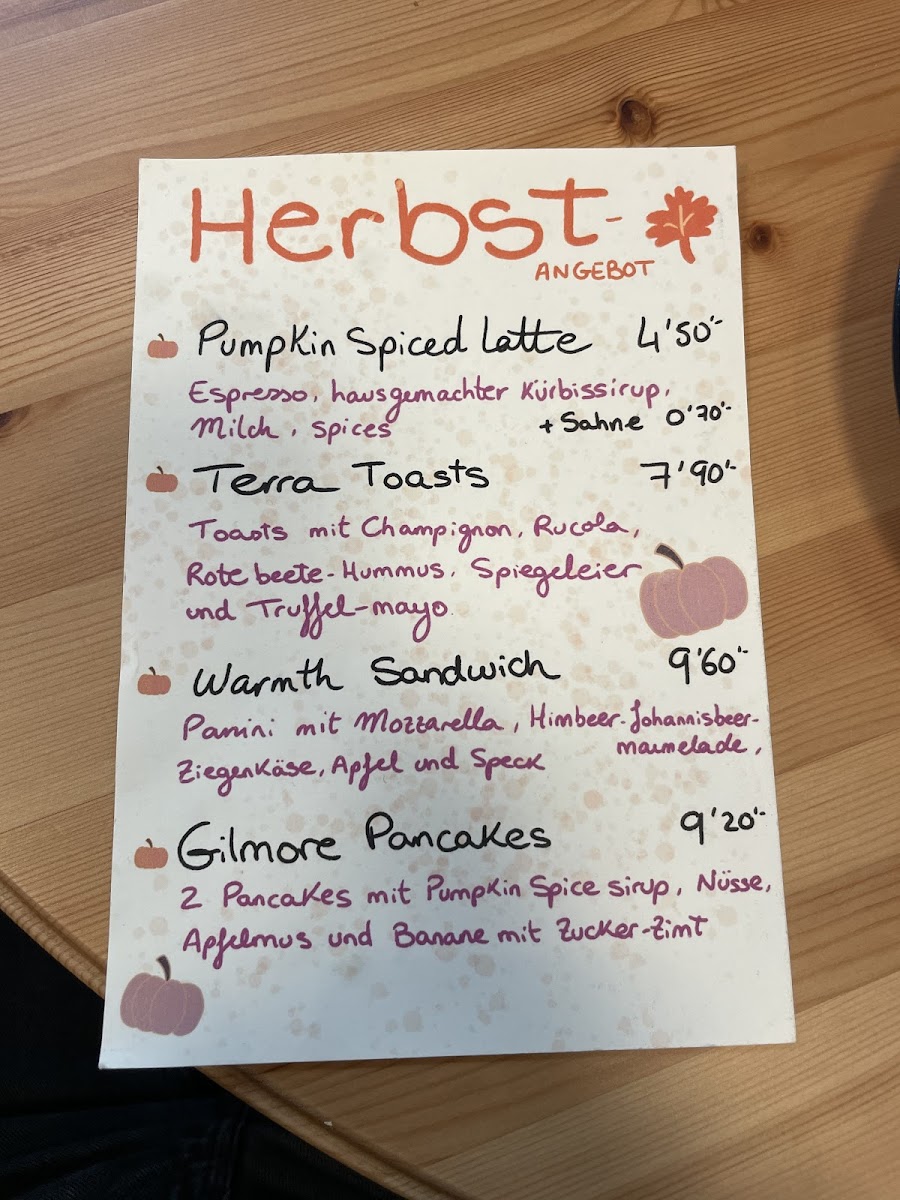 Herbst-
ANGEBOT
Pumpkin Spiced Latte 4'50'-
Espresso, hausgemachter Kürbissirup,
Milch, spices + Sahne 0'70'-
Terra Toasts 7'90'-
Toasts mit Champignon, Rucola,
Rote beete-Hummus, Spiegeleier
und Truffel-mayo.
Warmth Sandwich 9'60'-
Panini mit Mozzarella, Himbeer-Johannisbeer-
marmelade,
Ziegenkäse, Apfel und Speck
Gilmore Pancakes 9'20'-
2 Pancakes mit Pumpkin Spice sirup, Nüsse,
Apfelmus und Banane mit Zucker-Zimt